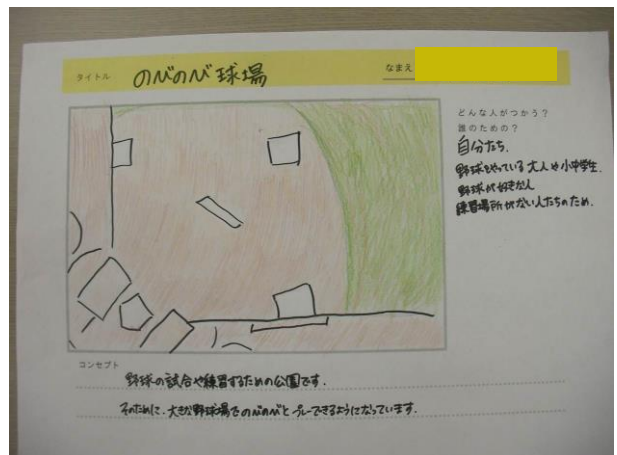 タイトル のびのび球場 なまえ
どんな人がつかう?
誰のための?
自分たち。
野球をやっている大人や小中学生。
野球が好きな人
練習場所がない人たちのため。
コンセプト
野球の試合や練習するための公園です。
そのために、大きな野球場でのびのびとプレーできるようになっています。